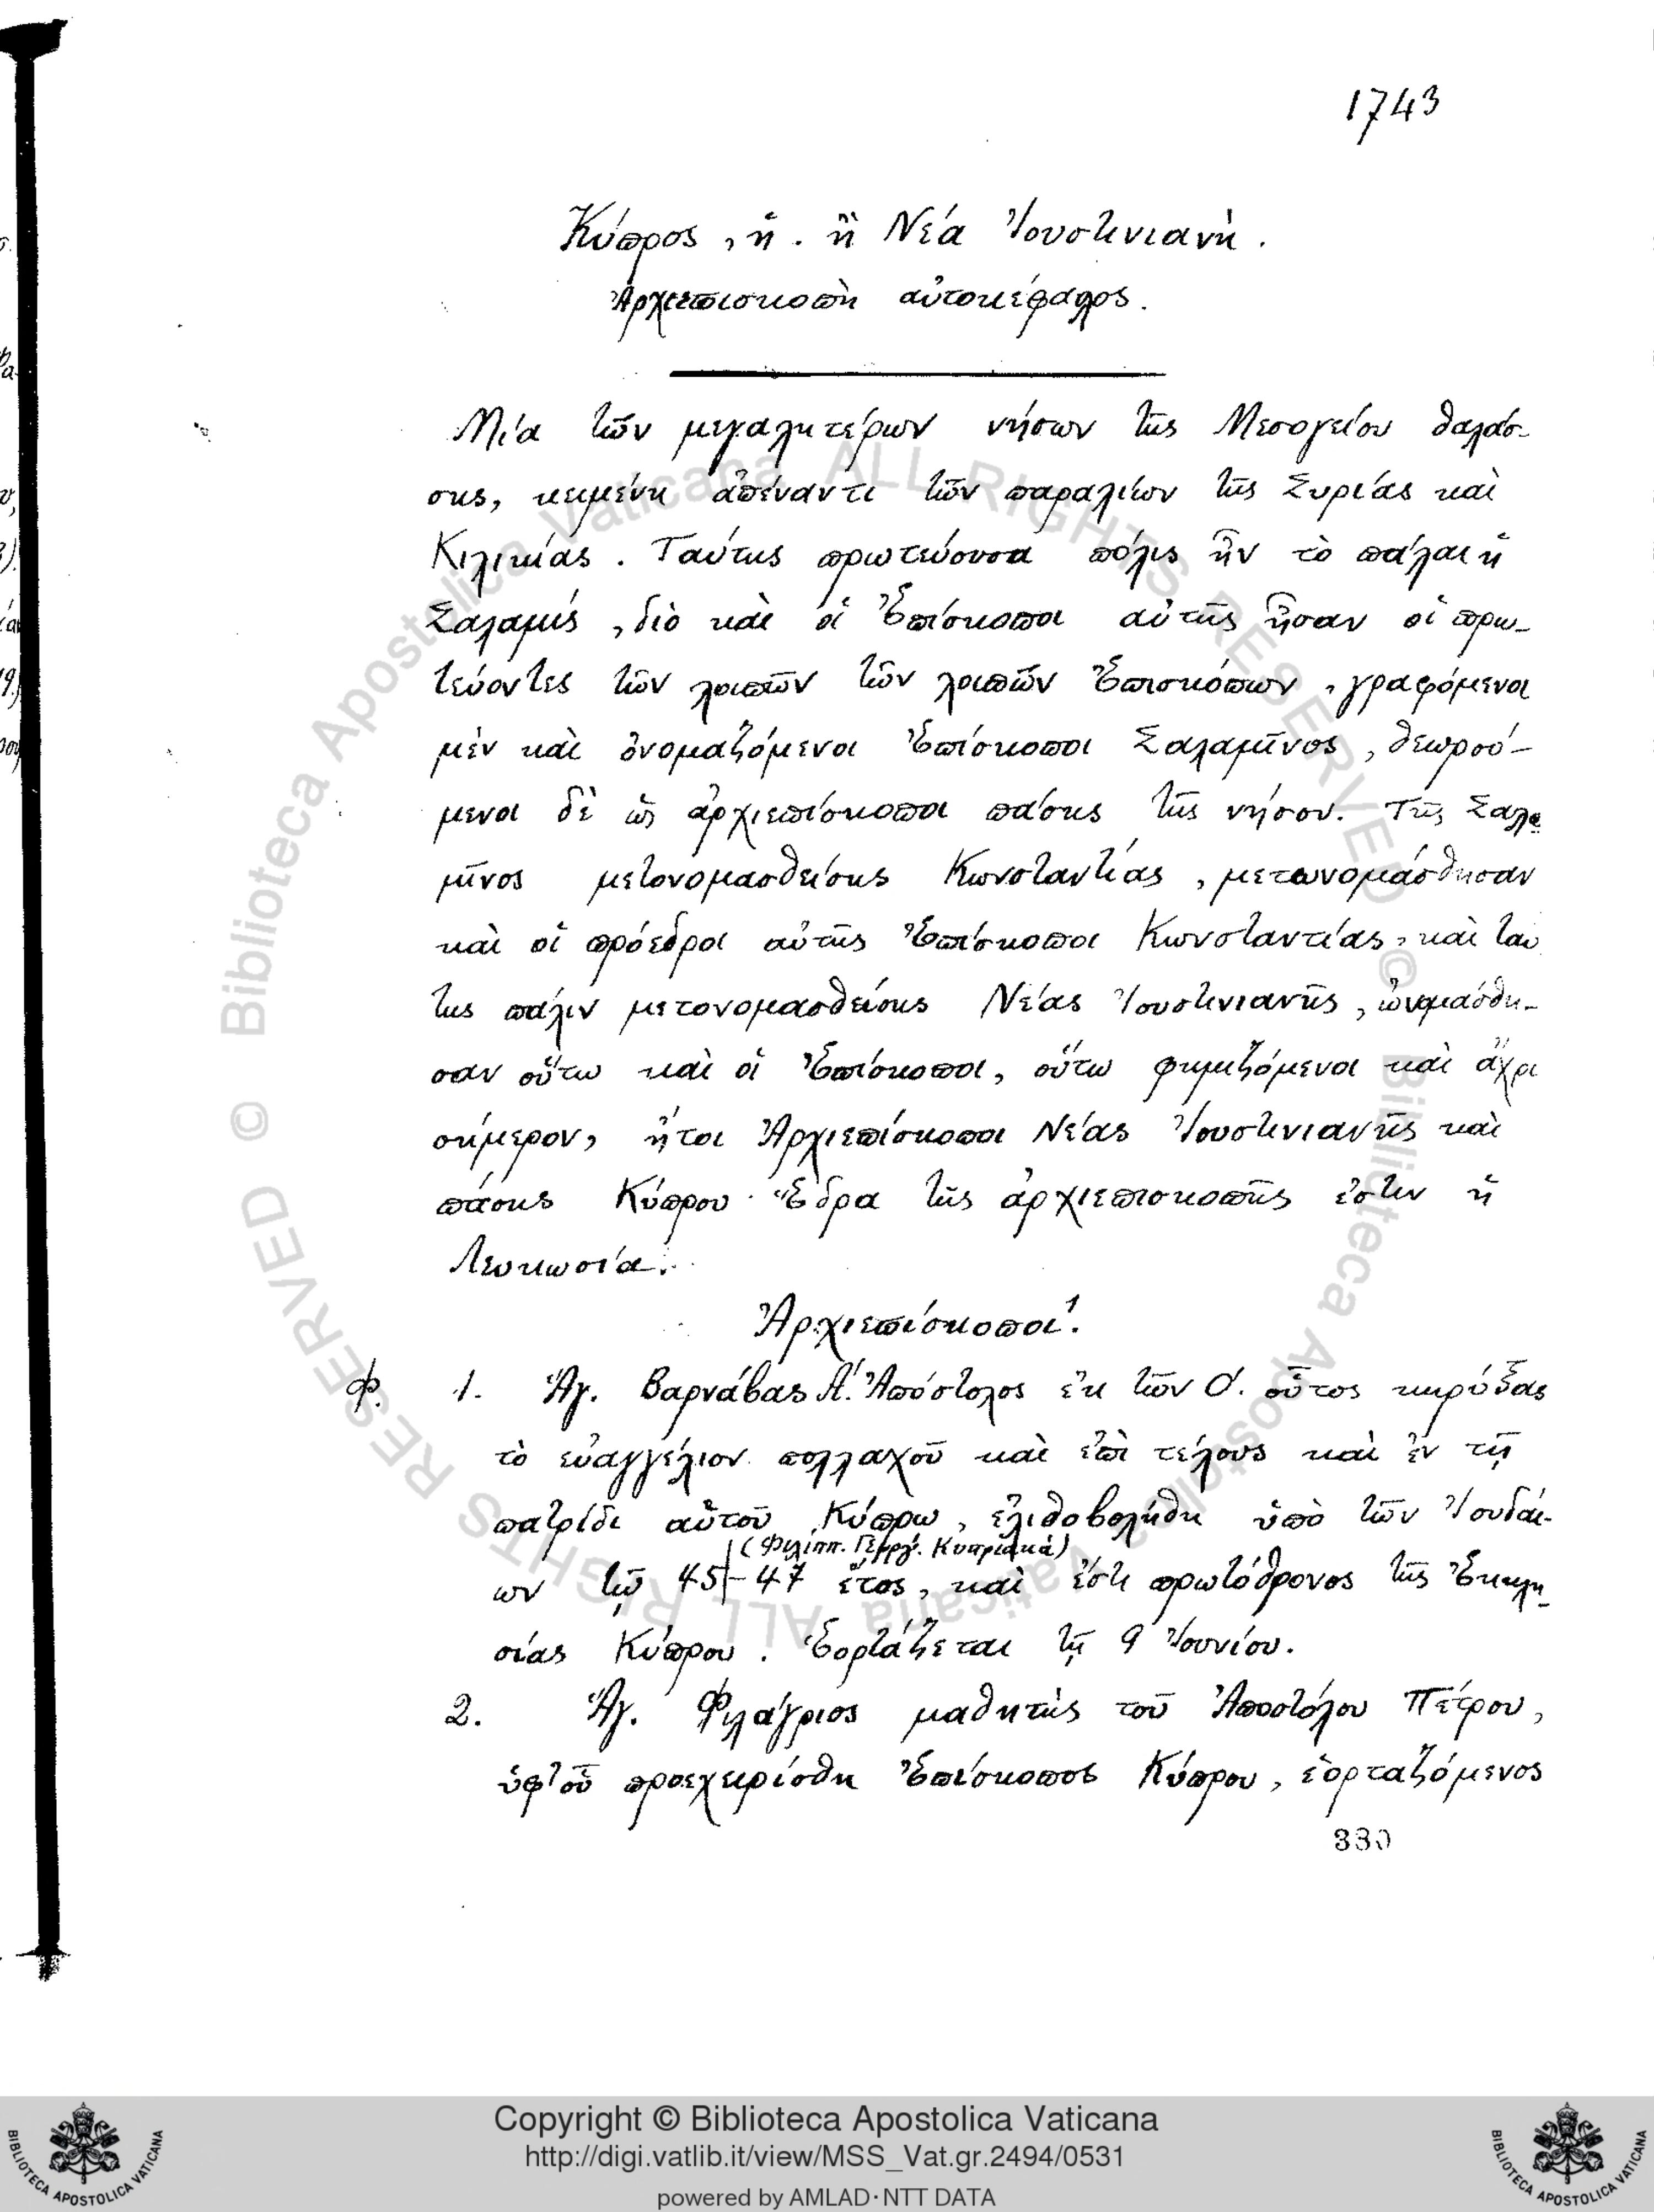 1743
Κύπρος, ἡ. ἢ Νέα Ἰουστινιανὴ.
Ἀρχιεπισκοπὴ αὐτοκέφαλος.
Μία τῶν μεγαλητέρων νήσων τῆς Μεσογείου θαλάσ-
σης, κειμένη ἀπέναντι τῶν παραλίων τῆς Συρίας καὶ
Κιλικίας. Ταύτης πρωτεύουσα πόλις ἦν τὸ πάλαι ἡ
Σαλαμὶς, διὸ καὶ οἱ Ἐπίσκοποι αὐτῆς ἦσαν οἱ πρω-
τεύοντες τῶν λοιπῶν τῶν λοιπῶν Ἐπισκόπων, γραφόμενοι
μὲν καὶ ὀνομαζόμενοι Ἐπίσκοποι Σαλαμῖνος, θεωρού-
μενοι δὲ ὡς ἀρχιεπίσκοποι πάσης τῆς νήσου. Τῆς Σαλα
μῖνος μετονομασθείσης Κωνσταντίας, μετωνομάσθησαν
καὶ οἱ πρόεδροι αὐτῆς Ἐπίσκοποι Κωνσταντίας, καὶ ταύ
της πάλιν μετονομασθείσης Νέας Ἰουστινιανῆς, ὠνομάσθη-
σαν οὕτω καὶ οἱ Ἐπίσκοποι, οὕτω φημιζόμενοι καὶ ἄχρι
σήμερον, ἤτοι Ἀρχιεπίσκοποι Νέας Ἰουστινιανῆς καὶ
πάσης Κύπρου. Ἕδρα τῆς ἀρχιεπισκοπῆς ἐστιν ἡ
Λευκωσία.
Ἀρχιεπίσκοποι¹.
Φ. 1. Ἅγ. Βαρνάβας Α΄. Ἀπόστολος ἐκ τῶν Ο΄. οὗτος κηρύξας
τὸ εὐαγγέλιον πολλαχοῦ καὶ ἐπὶ τέλους καὶ ἐν τῇ
πατρίδι αὐτοῦ Κύπρω, ἐλιθοβολήθη ὑπὸ τῶν Ἰουδαί-
(Φιλίππ. Γεωργ. Κυπριακά)
ων τῷ 45-47 ἔτος, καὶ ἔστι πρωτόθρονος τῆς Ἐκκλη_
σίας Κύπρου. Ἑορτάζεται τῇ 9 Ἰουνίου.
2. Ἅγ. Φιλάγριος μαθητὴς τοῦ Ἀποστόλου Πέτρου,
ὑφ' οὗ προεχειρίσθη Ἐπίσκοπος Κύπρου, ἑορταζόμενος
330
© Biblioteca Apostolica Vaticana ALL RIGHTS RESERVED © Biblioteca Apostolica Vaticana ALL RIGHTS RESERVED
Copyright © Biblioteca Apostolica Vaticana
http://digi.vatlib.it/view/MSS_Vat.gr.2494/0531
powered by AMLAD·NTT DATA
BIBLIOTECA APOSTOLICA VATICANA
BIBLIOTECA APOSTOLICA VATICANA